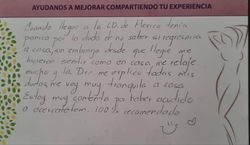 AYUDANOS A MEJORAR COMPARTIENDO TU EXPERIENCIA
Cuando llegue a la CD. de Mexico tenia
panico por la duda de no saber si regresaria
a casa, sin embargo desde que llegué me
hicieron sentir como en casa, me relaje
mucho y la Dra. me explico todas mis
dudas, me voy muy tranquila a casa
Estoy muy contenta por haber acudido
a acercarte 100% recomendado